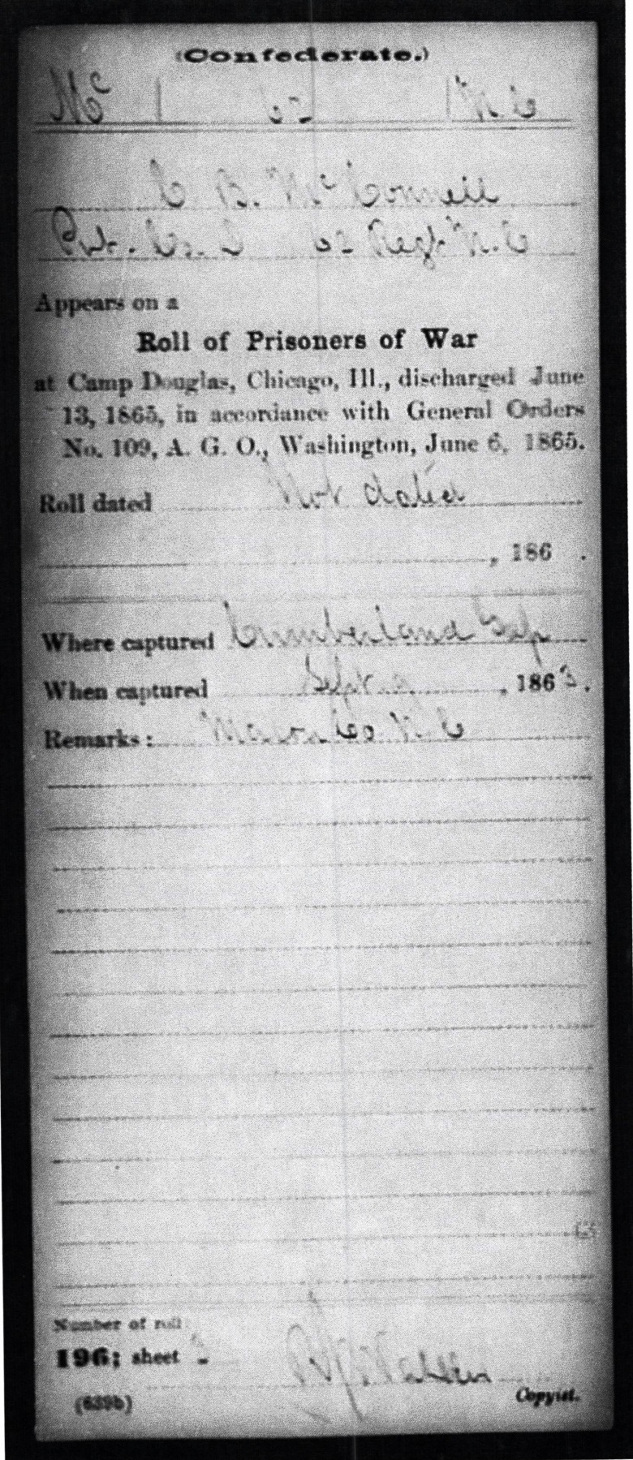 (Confederate.)
Mc 62 N. C
C B. McConnell
Pvt. Co. 62 Regt N. C
Appears on a
Roll of Prisoners of War
at Camp Douglas, Chicago, Ill., discharged June
13, 1865, in accordance with General Orders
No. 109, A. G. O., Washington, June 6, 1865.
Roll dated Not dated
, 186 .
Where captured Cumberland Gap
When captured Sept. 9, 1863.
Remarks: Macon Co N C
Number of roll:
196; sheet
Copyist.
(639b)